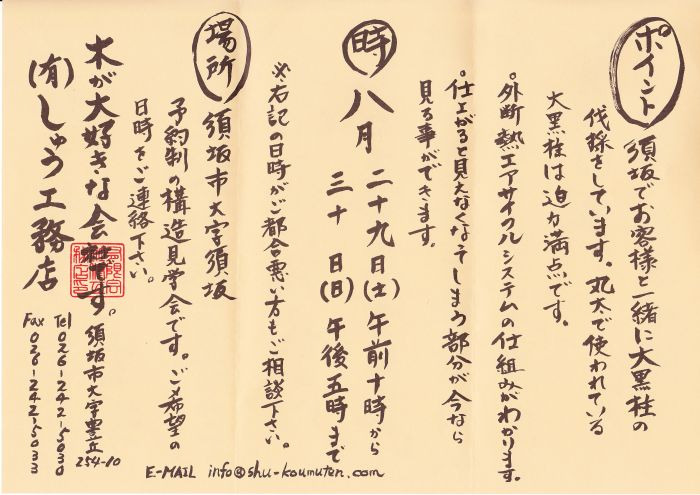 ポイント
須坂でお客様と一緒に大黒柱の
伐採をしています。丸太で使われている
大黒柱は迫力満点です。
。外断熱エアサイクルシステムの仕組みがわかります。
。仕上がると見えなくなってしまう部分が今なら
見る事ができます。
時
八月 二十九日(土)午前十時から
三十日(日)午後五時まで
※右記の日時がご都合悪い方もご相談下さい。
場所
須坂市大字須坂
予約制の構造見学会です。ご希望の
日時をご連絡下さい。
木が大好きな会社です。
須坂市大字豊丘
254-10
(有)しゅう工務店
Tel 026-242-5030
Fax 026-242-5033
E-MAIL info@shu-koumuten.com